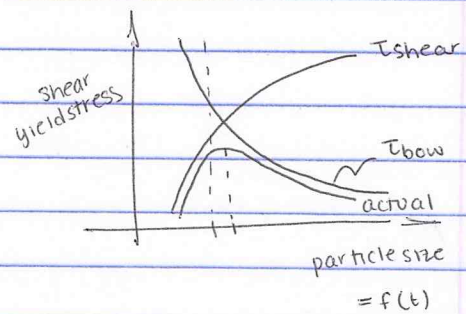 shear
yieldstress
τshear
τbow
actual
particle size
= f(t)